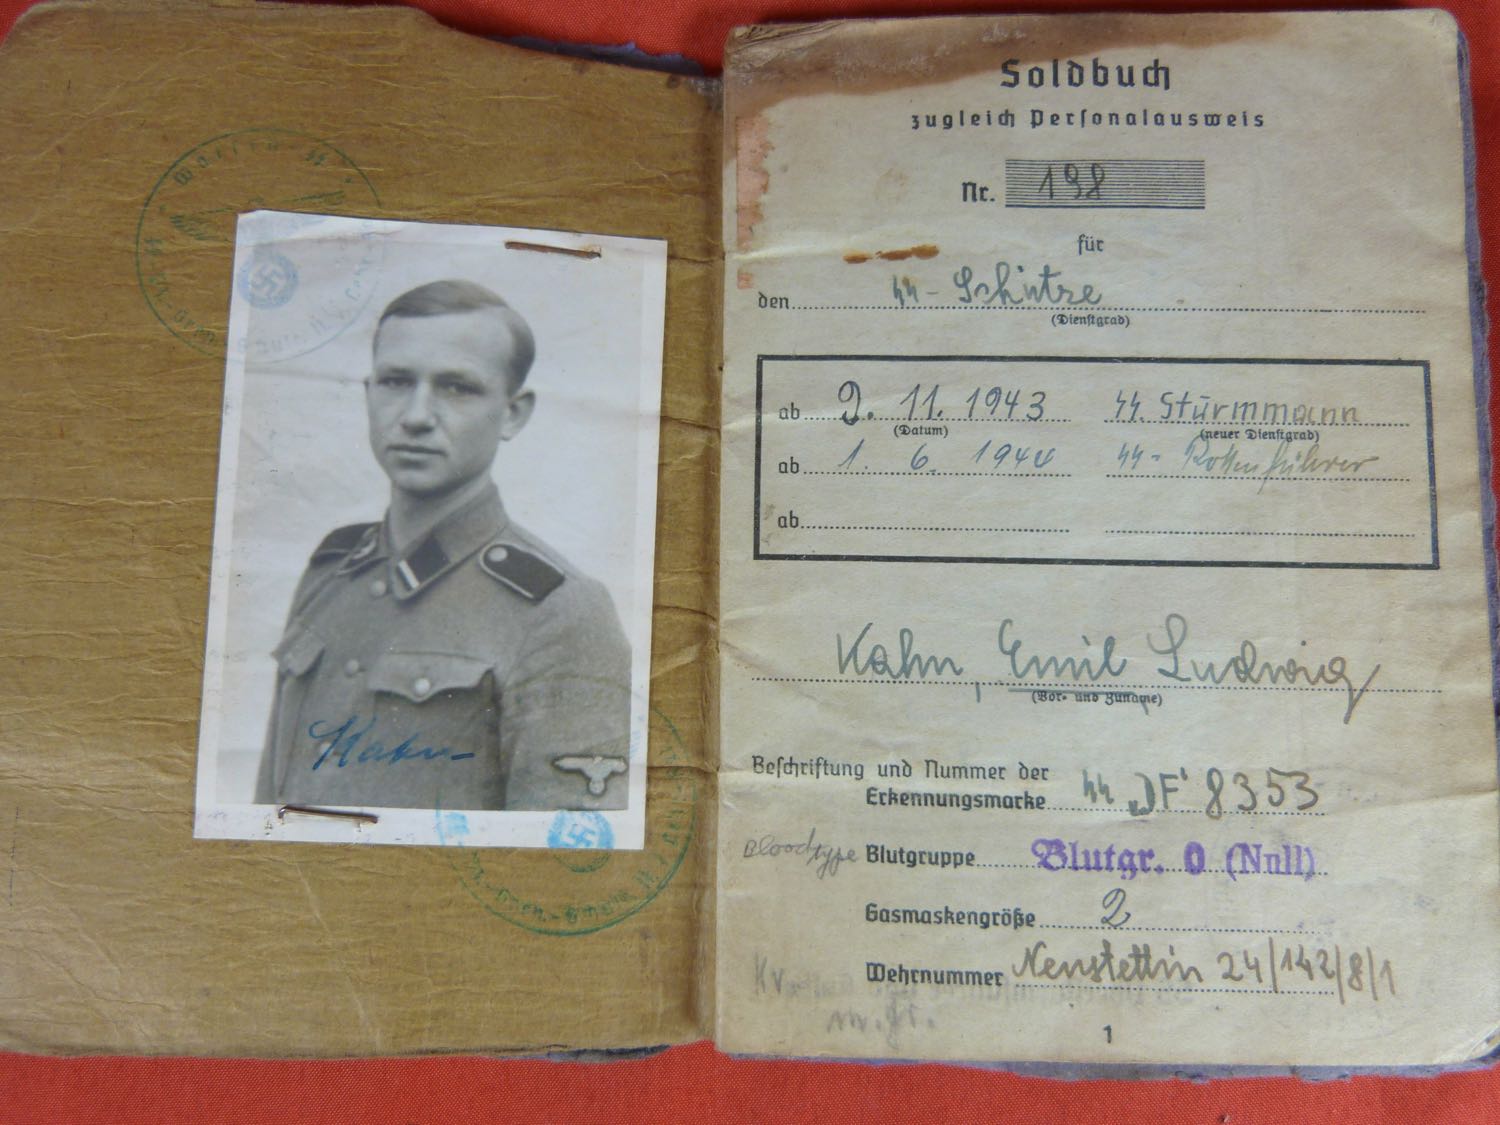 Waffen-SS
Kahn
Soldbuch
zugleich Personalausweis
Nr. 198
für
den SS-Schütze
(Dienstgrad)
ab 9. 11. 1943 SS. Sturmmann
(Datum) (neuer Dienstgrad)
ab 1. 6. 1944 SS-Rottenführer
ab
Kahn, Emil Ludwig
(Vor- und Zuname)
Beschriftung und Nummer der
Erkennungsmarke SS "DF" 8353
Bloodtype Blutgruppe Blutgr. 0 (Null)
Gasmaskengröße 2
Wehrnummer Neustettin 24/142/8/1
Kv.
1